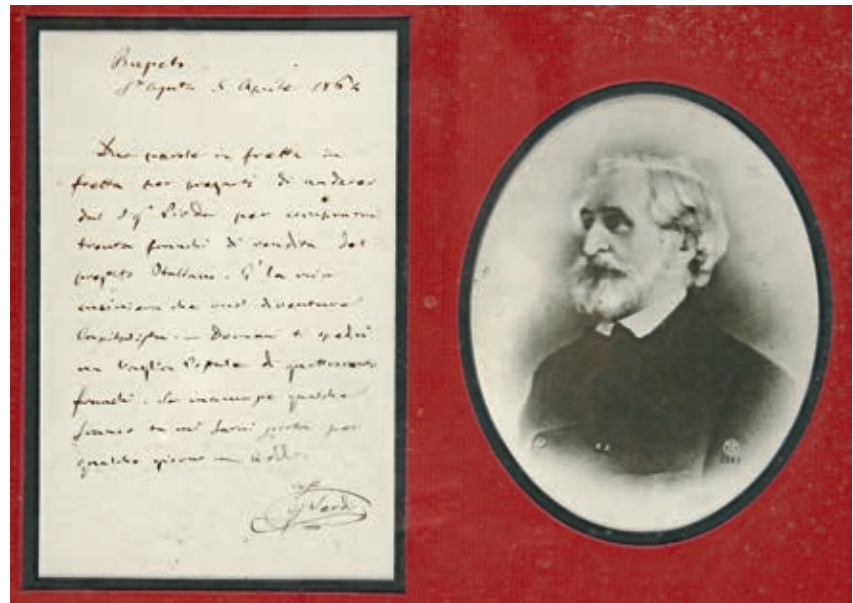 Busseto
St Agata 5 Aprile 1864
Due parole in fretta in
fretta per pregarti di andare
dal Sigr per comprarmi
trenta franchi di rendita del
prestito Italiano. È la mia
cuciniera che vuol diventare
Capitalista. — Domani ti spedirò
un Vaglia Postale di quattrocento
franchi. Se manca qualche
franco tu mi farai per
qualche giorno — Addio
G Verdi